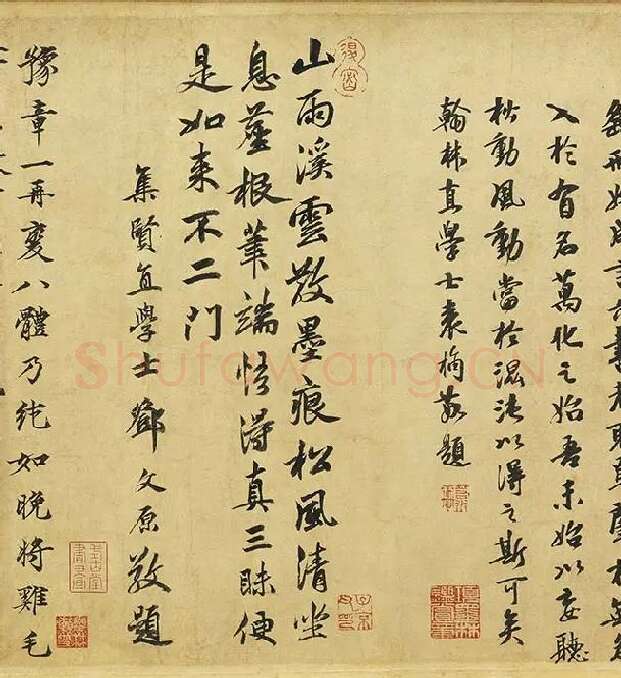 入於有名萬化之始吾未始以妄聽
松動風動當於混沌以得之斯可矣
翰林直學士袁桷敬題
山雨溪雲散墨痕松風清坐
息塵根筆端悟得真三昧便
是如來不二門
集賢直學士鄧文原敬題
豫章一再變八體乃純如晚將雞毛
Shufawang.CN